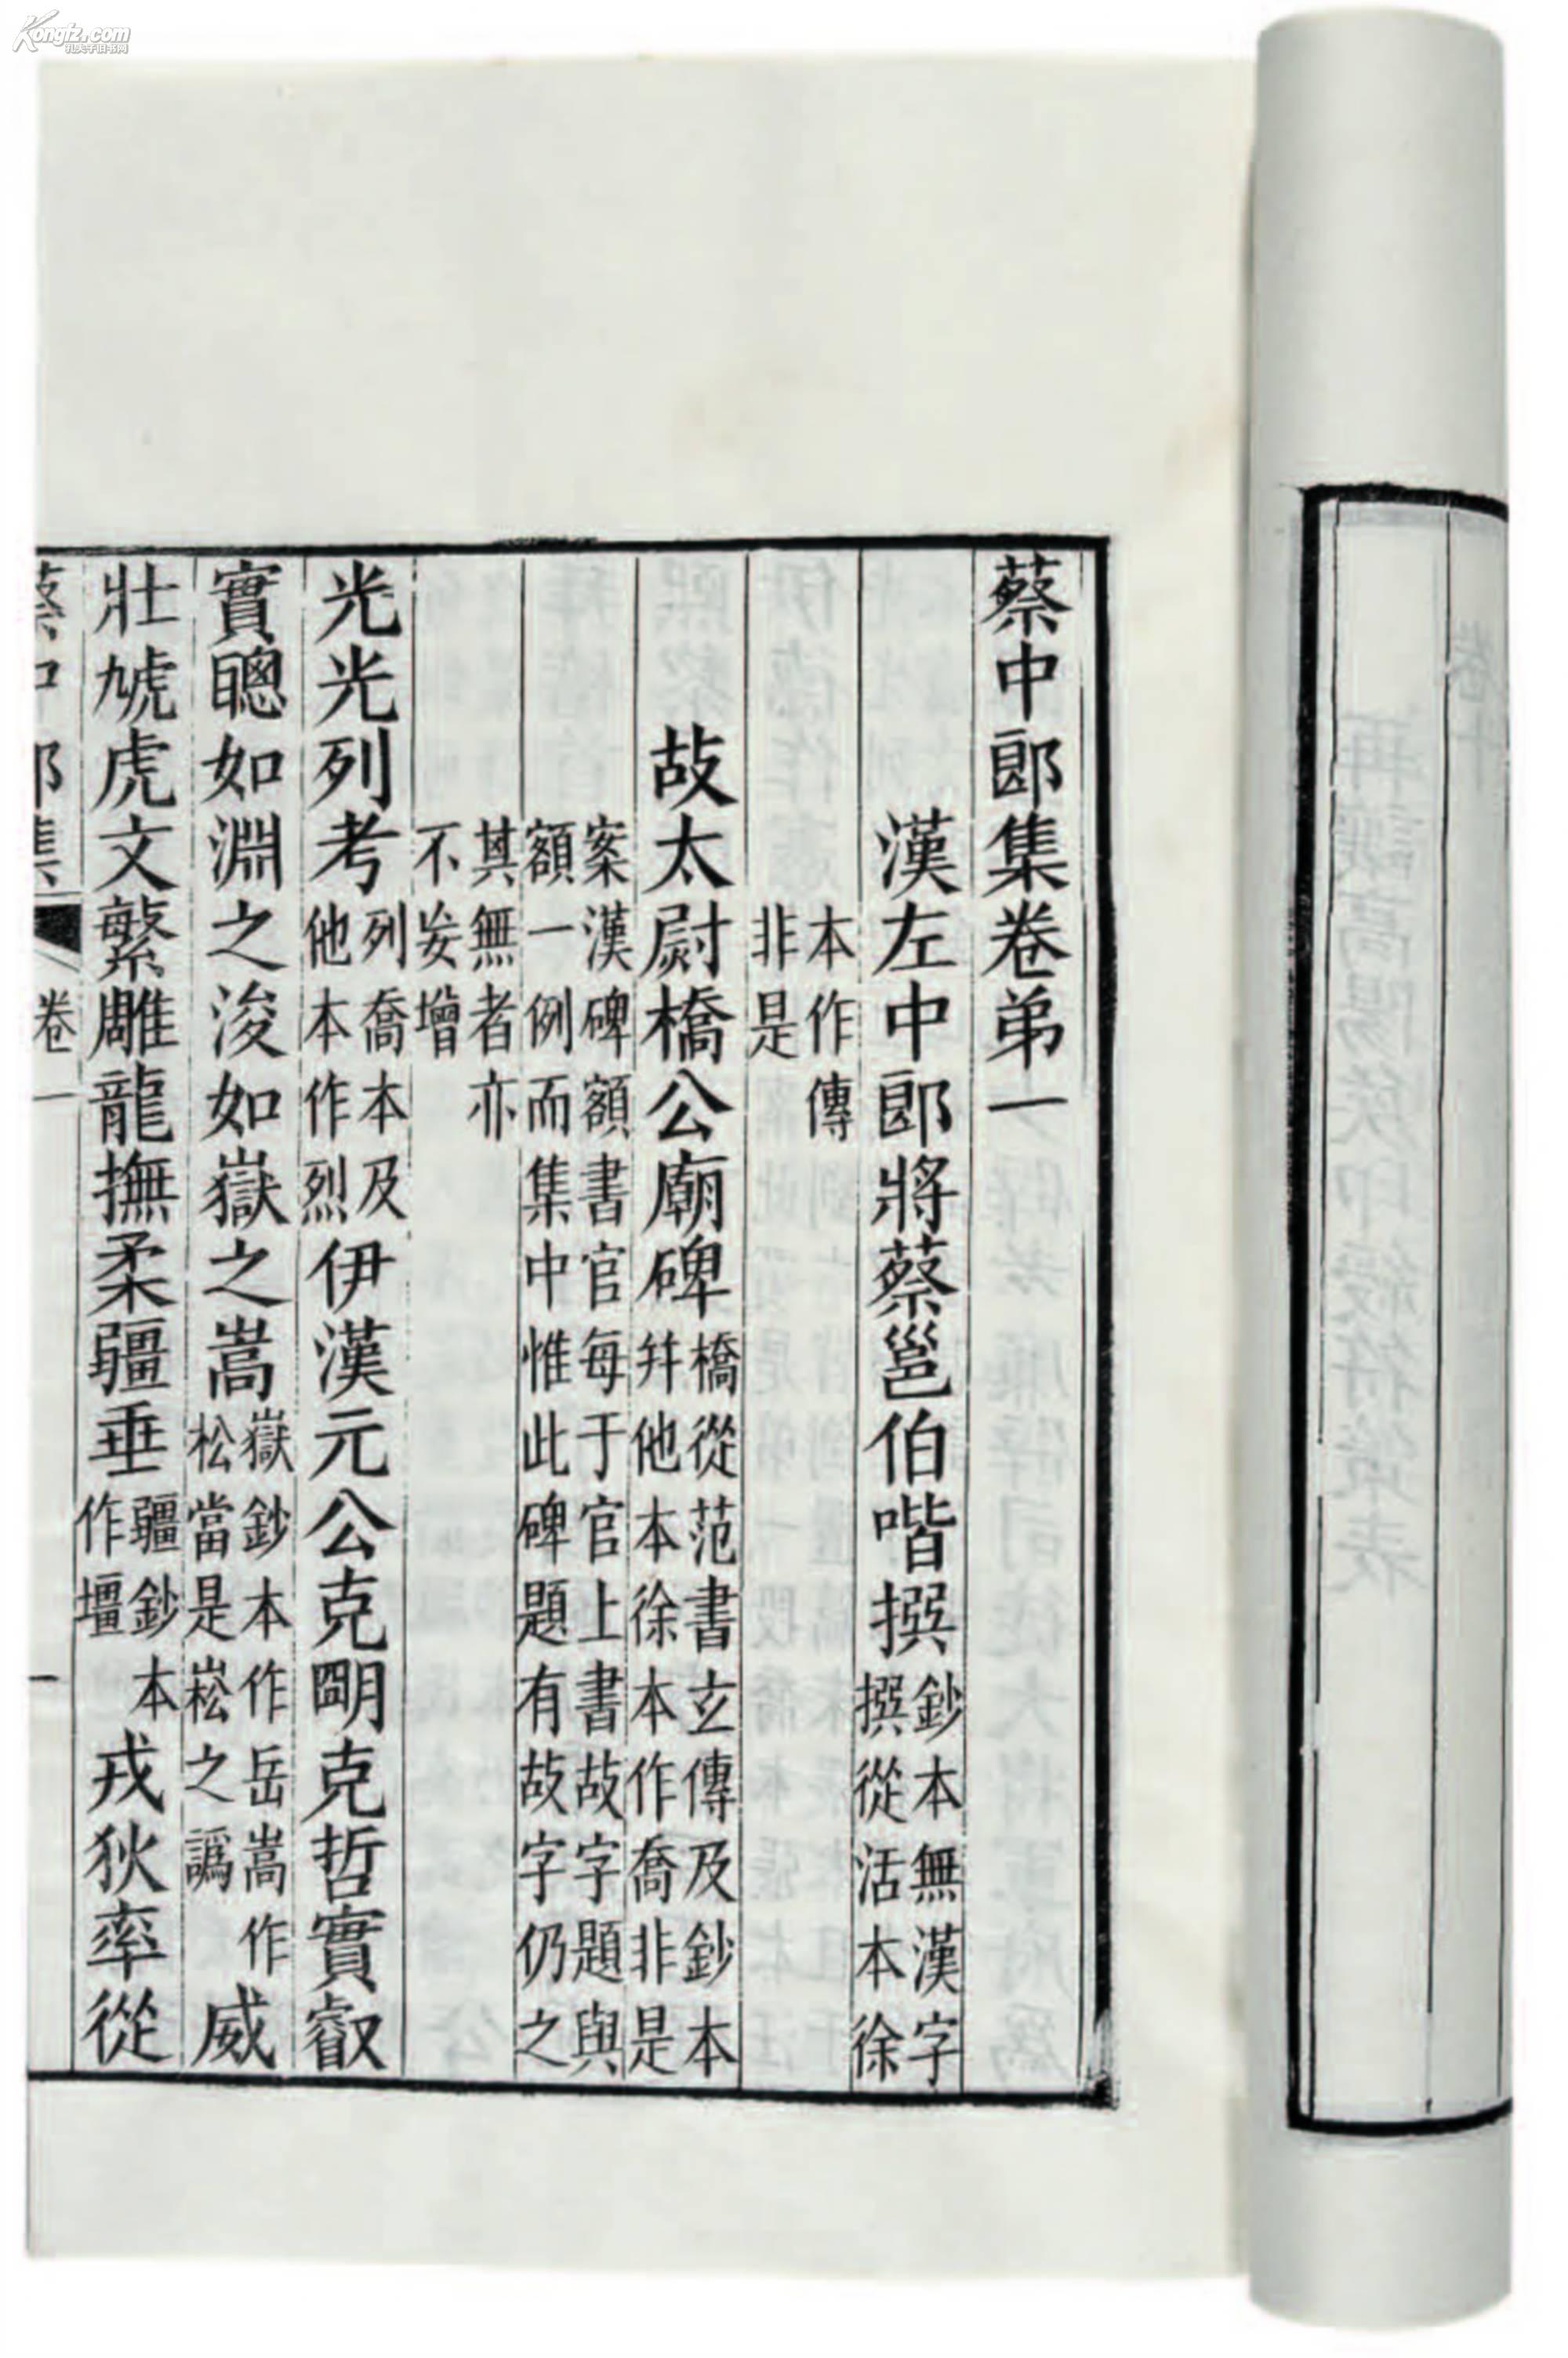 Kongfz.com
孔夫子旧书网
蔡中郎集卷弟一
漢左中郎將蔡邕伯喈撰鈔本無漢字撰從活本徐
本作傳非是
故太尉橋公廟碑橋從范書玄傳及鈔本幷他本徐本作喬非是
案漢碑額書官每于官上書故字題與額一例而集中惟此碑題有故字仍之
其無者亦不妄增
光光列考列喬本及他本作烈伊漢元公克朙克哲實叡
實聰如淵之浚如嶽之嵩嶽鈔本作岳嵩作松當是崧之譌威
壯虓虎文繁雕龍撫柔疆垂疆鈔本作壃戎狄率從
蔡中郎集
卷一
一